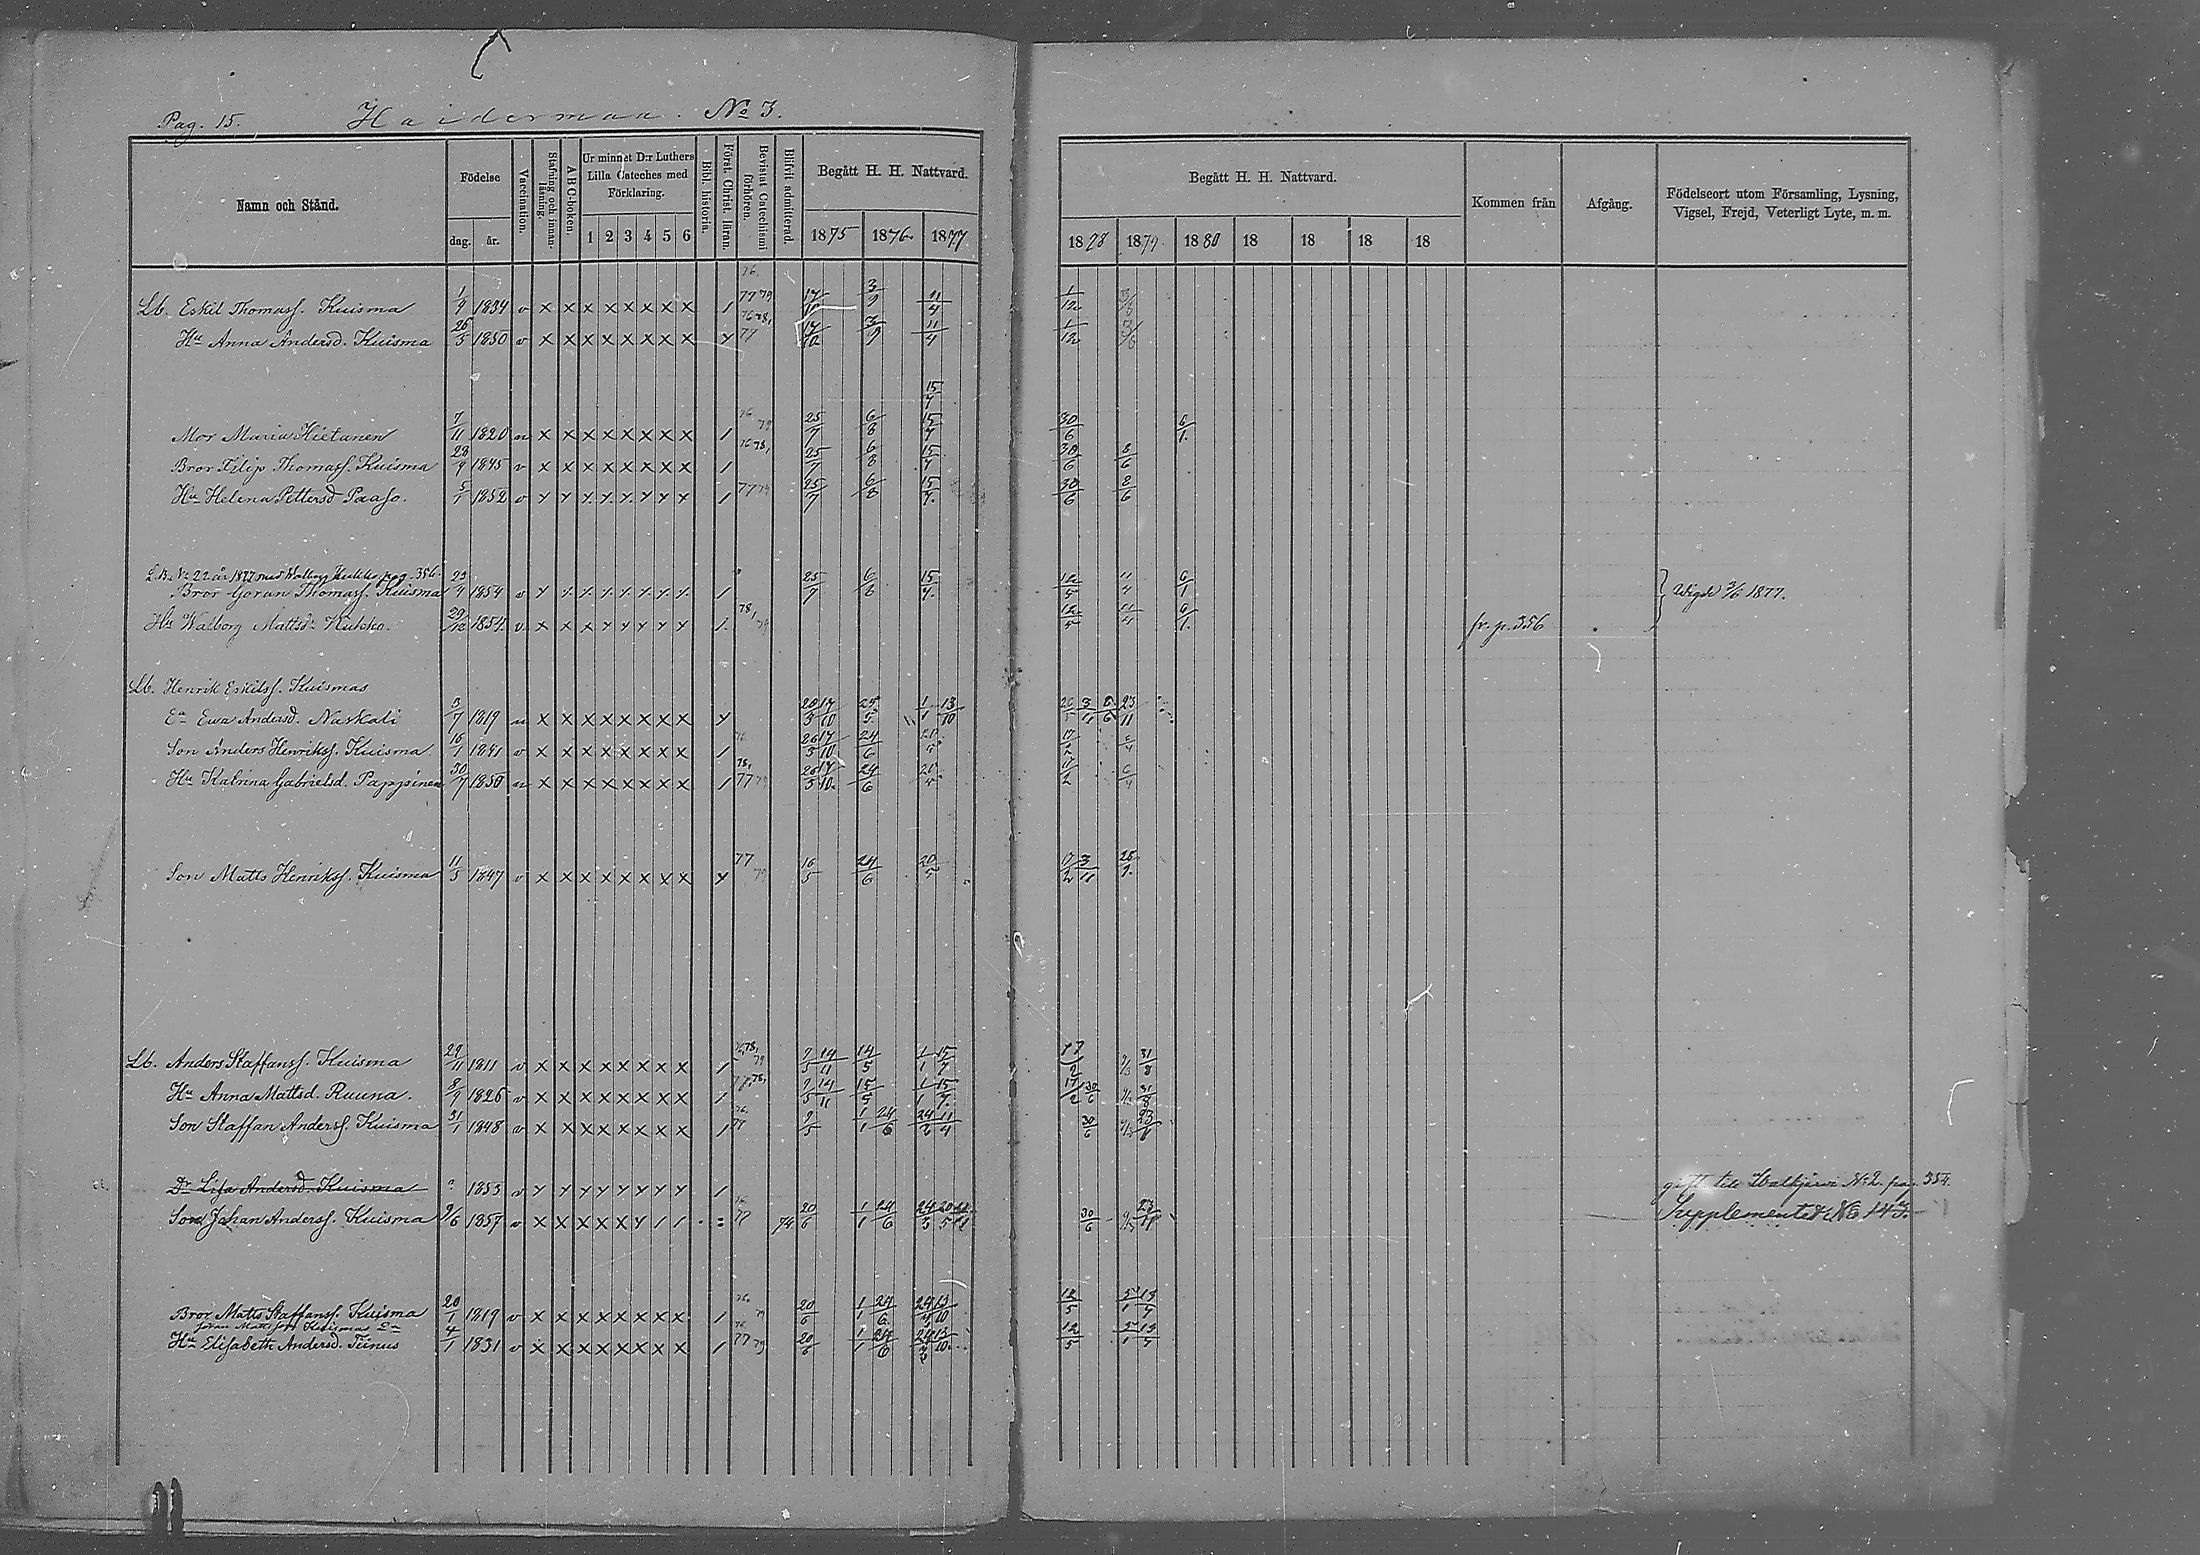 Pag. 15. Haidermaa. No 3.
Namn och Stånd.
Födelse
dag. år.
Vaccination.
Stafning och innan-läsning.
A B C-boken.
Ur minnet D:r Luthers
Lilla Cateches med
Förklaring.
1 2 3 4 5 6
Bibl. historia.
Först. Christ. läran.
Bevistat Catechismi förhören.
Blifvit admitterad.
Begått H. H. Nattvard.
1875 1876. 1877
Begått H. H. Nattvard.
1878 1879. 1880 18 18 18 18
Kommen från
Afgång.
Födelseort utom Församling, Lysning,
Vigsel, Frejd, Veterligt Lyte, m. m.
Lb. Eskil Thomass. Kuisma 1/9 1834 v x x x x x x x x 1 77 79 17/10 3/9 11/4 1/12
Hu Anna Andersd. Kuisma 26/3 1850 v x x x x x x x x x 79 17/10 3/9 11/4 1/12 3/6
15/7
Mor Maria Hietanen 7/11 1820 n x x x x x x x x 1 76 79 25/7 6/8 15/7 30/6 6/1.
Bror Filip Thomass. Kuisma 28/9 1845 v x x x x x x x x 1 76 78, 25/7 6/8 15/7 30/6 8/6
Hu Helena Pettersd Paaso. 5/1 1852 v x x x x x x x x 1 77 79 25/7 6/8 15/7. 30/6 8/6
L.B. No 22 år 1877 med Walborg Kukko pag. 356.
Bror Göran Thomass. Kuisma 23/4 1854 v x x x x x x x x 1 25/7 6/8 15/7. 12/5 11/4 6/1 Vigde 3/6 1877.
Hu Walborg Mattsdr Kukko. 29/12 1854. v. x x x x x x x x 1. 78, 79 12/5 11/4 6/1. fr. p. 356
Lb. Henrik Eskilss. Kuismas
Ea Ewa Andersd. Naskali 3/7 1819 n x x x x x x x x x 26/3 17/10 25/5 1/1 13/10 3/11 23/11
Son Anders Henrikss. Kuisma. 16/1 1841 v x x x x x x x x 1 26/3 17/10 24/6 20/5 17/2 6/4
Hu Katrina Gabrielsd. Pappinen 30/7 1850 n x x x x x x x x 1 78, 77 79 26/3 17/10. 24/6 20/5 17/2 6/4
Son Matts Henrikss. Kuisma 11/3 1847 v x x x x x x x x x 77 79 16/5 24/6 20/5 17/2 3/11 28/9.
Lb. Anders Staffanss. Kuisma 29/11 1811 v x x x x x x x x 1 78, 79 9/5 14/11 14/5 1/1 15/7 17/2 31/8
Hu Anna Mattsd. Ruuna. 8/9 1826 v x x x x x x x x 1 77, 78, 9/5 14/11 15/5 1/1 15/7. 17/2 30/6 31/8
Son Staffan Anderss. Kuisma 31/1 1848 v x x x x x x x x 1 76. 77 9/5 1/1 24/6 24/2 11/4 30/6
Dr Lisa Andersd. Kuisma ? 1853 v x x x x x x x x 1 gift till Walkjärvi No 2. pag. 354.
Son Johan Anderss. Kuisma 9/6 1857 v x x x x x x 1 1 76 77 74 20/6 1/1 24/6 30/6 Supplementet No 143.
Bror Matts Staffanss. Kuisma 20/1 1819 v x x x x x x x x 1 76. 79 20/6 1/1 24/6 13/10 12/5 5/1 13/4
Göran Mattssons Kuismas Ea
Hu Elisabeth Andersd. Tiinus 4/1 1831 v x x x x x x x x 1 77 79 20/6 1/1 24/6 13/10. 12/5 5/1 13/4